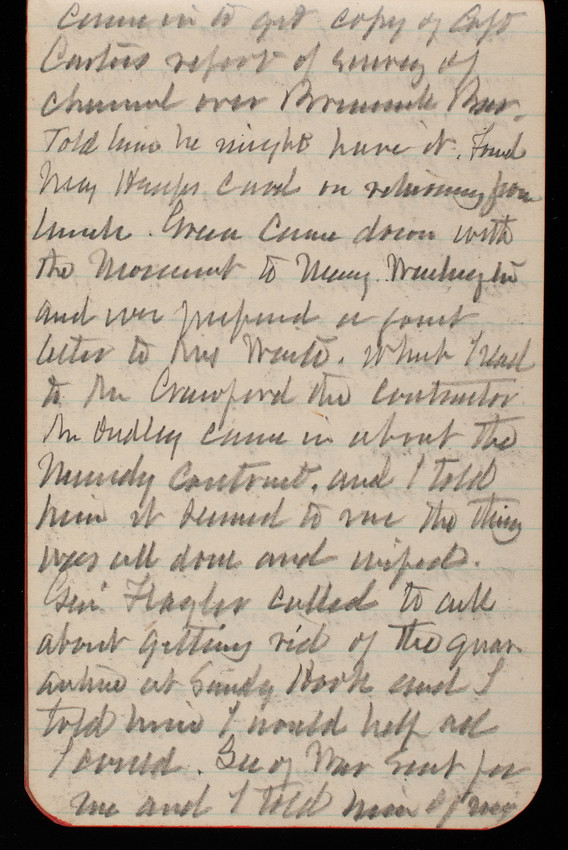 came in to get copy of Capt
Carters report of survey of
channel over Brunswick Bar.
Told him he might have it. Found
May Hamps Card on returning from
lunch. Green came down with
the Monument to Mary Washington
and we prepared a joint
letter to Mrs Waite. Which I read
to Mr Crawford the contractor
Mr Dudley came in about the
Mundy contract. and I told
him it seemed to me the thing
was all done and wiped.
Gen. Flagler called to ask
about getting rid of the quar
antine at Sandy Hook and I
told him I would help all
I could. Sec of War sent for
me and I told him of my